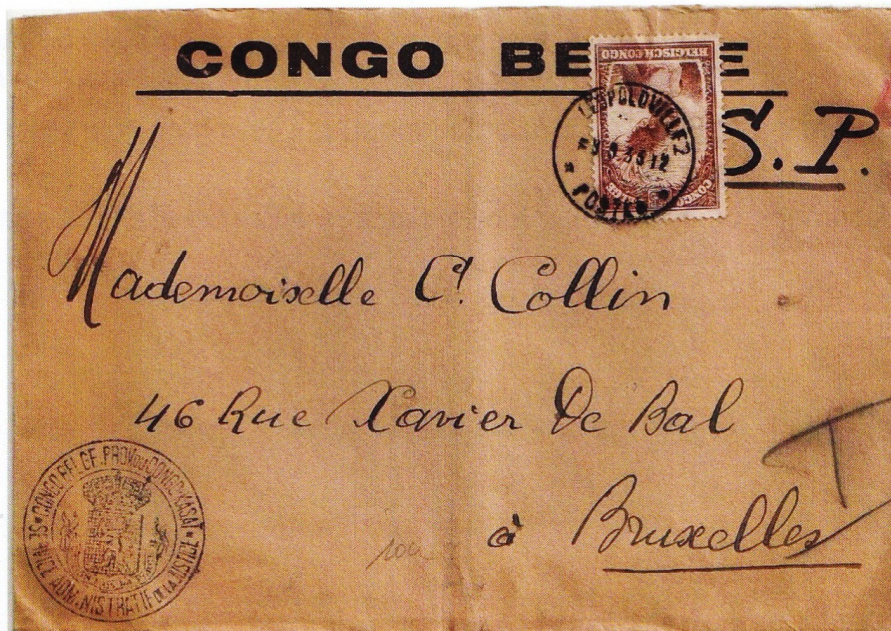 CONGO BE E
BELGISCH CONGO
CONGO
LEOPOLDVILLE 2
POSTES
S.P.
Mademoiselle C. Collin
46 Rue Xavier De Bal
à Bruxelles
T
CONGO BELGE. PROV. DU CONGO-KASAÏ
SERVICE ADMINISTRATIF DE LA JUSTICE